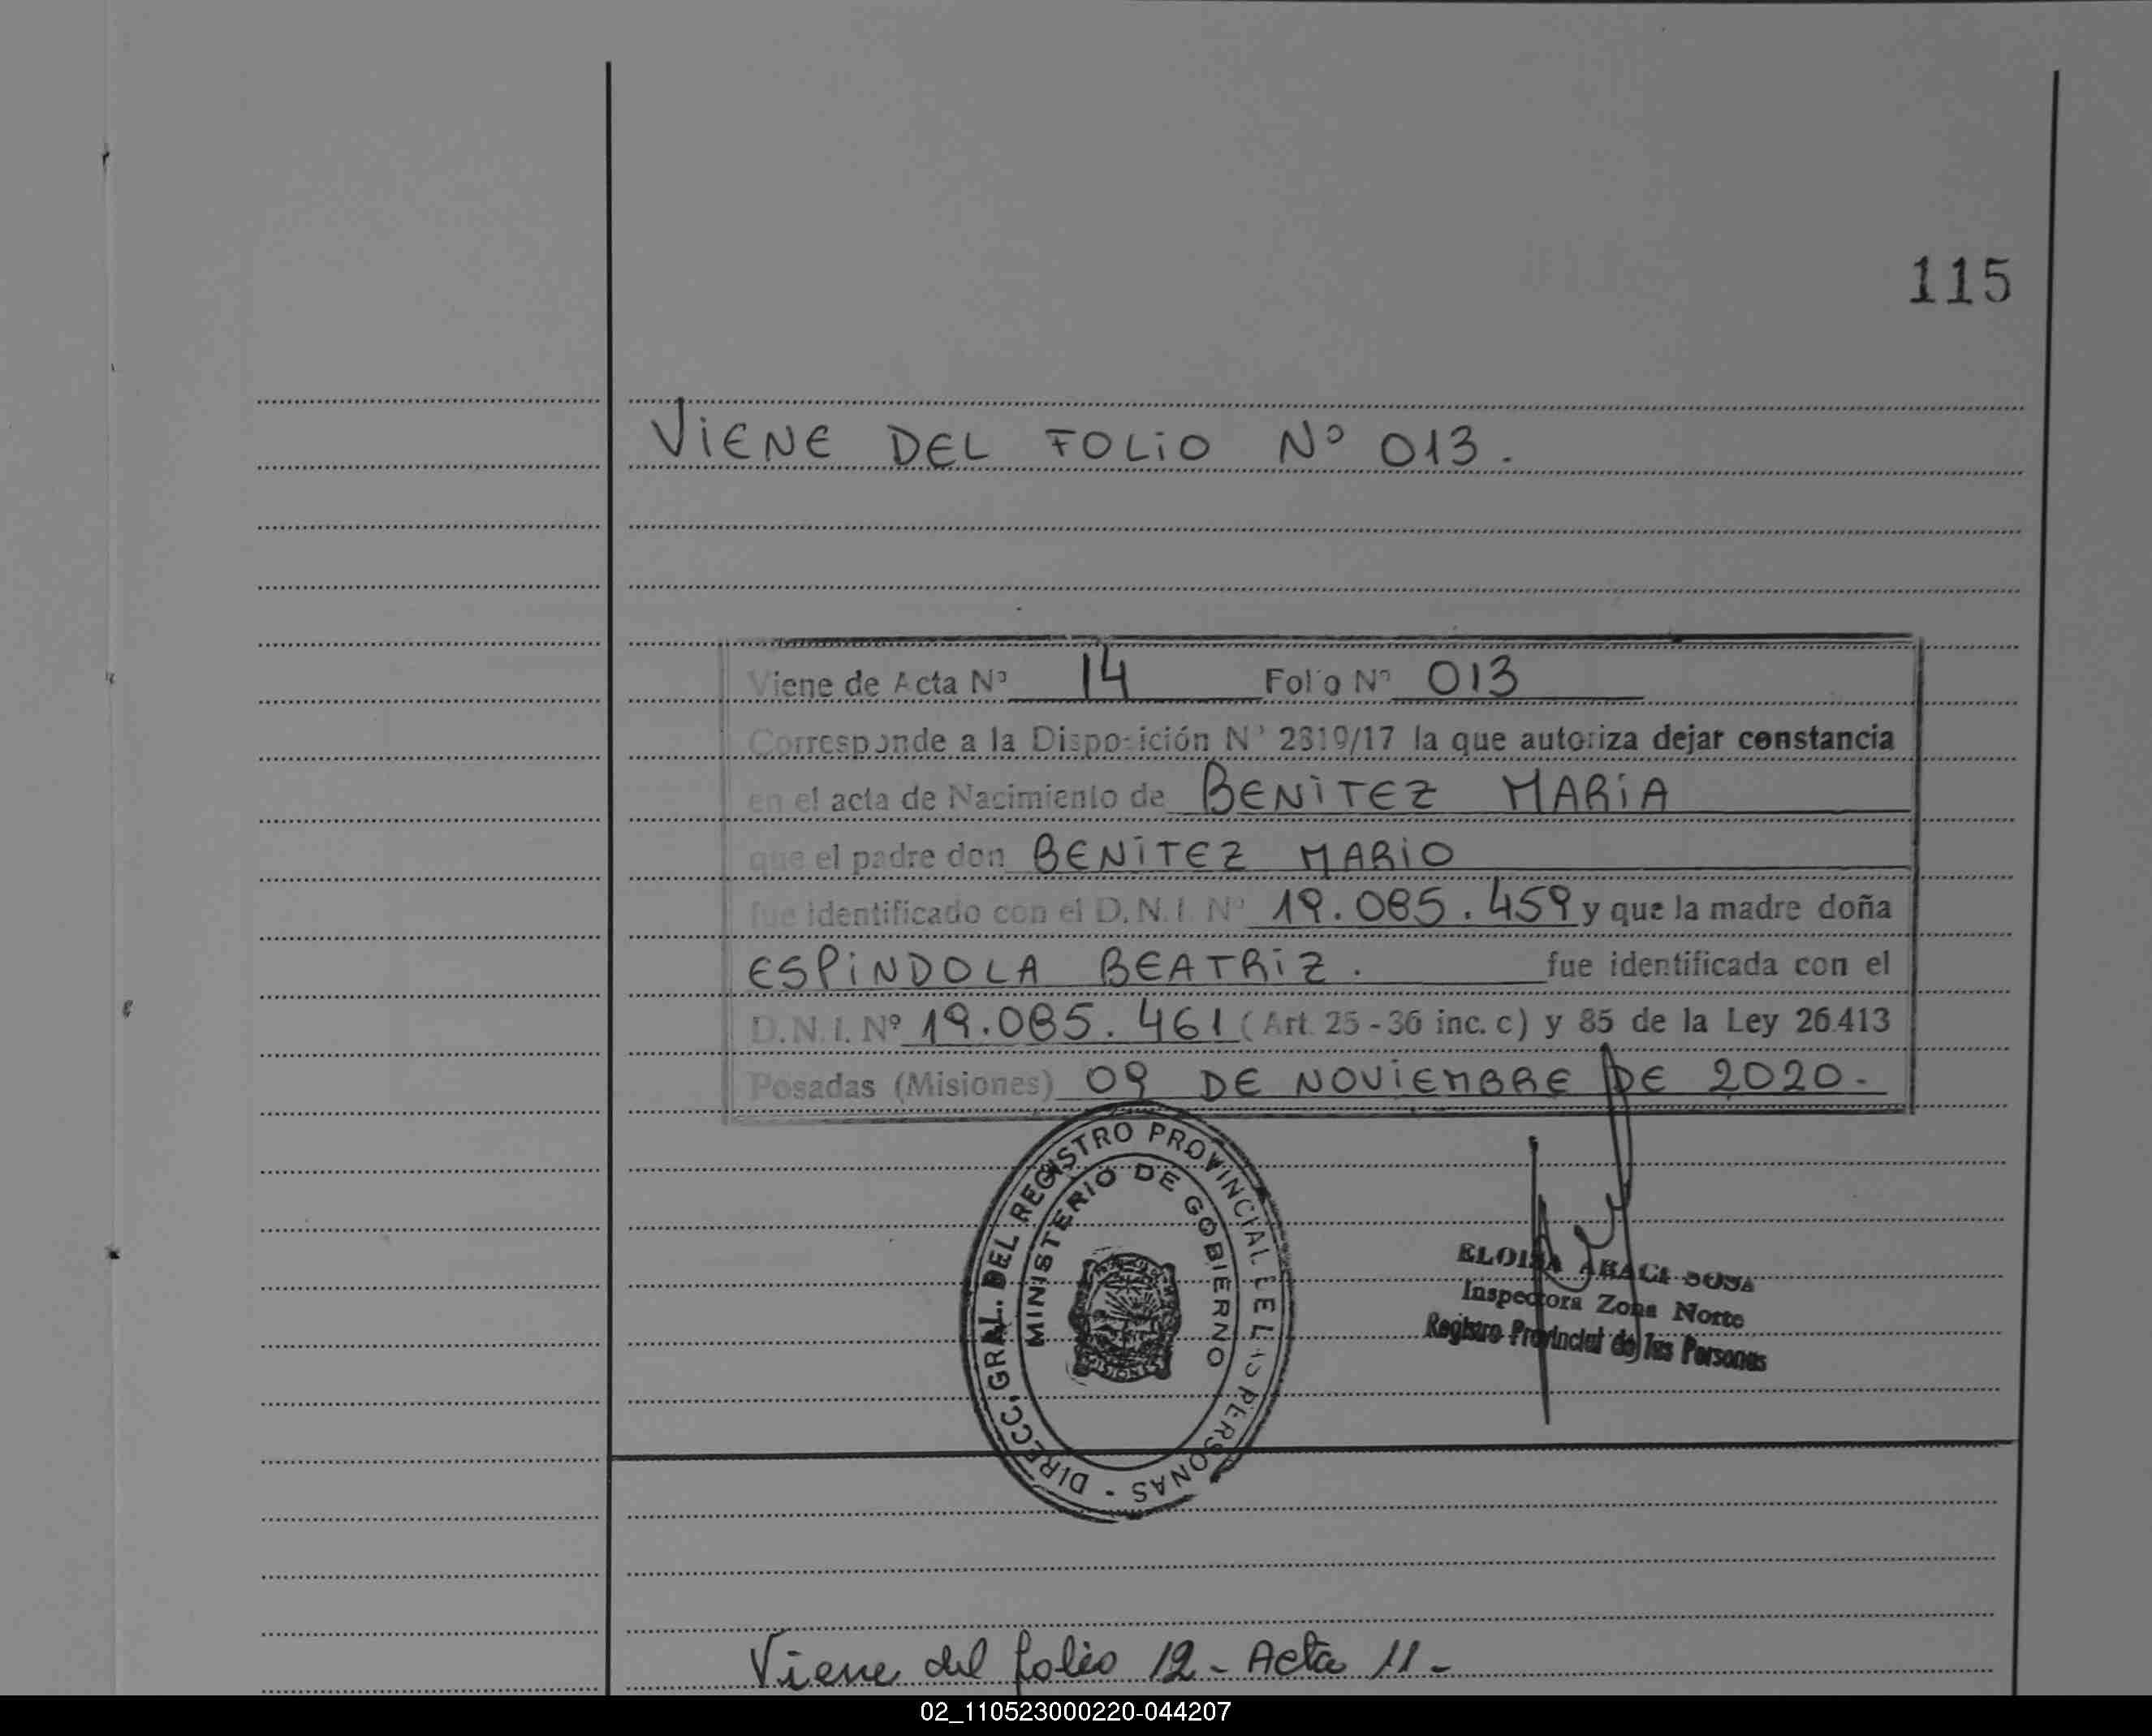 115
VIENE DEL FOLIO Nº 013.
Viene de Acta Nº 14 Folio Nº 013
Corresponde a la Disposición Nº 2319/17 la que autoriza dejar constancia
en el acta de Nacimiento de BENITEZ MARIA
que el padre don BENITEZ MARIO
fue identificado con el D.N.I. Nº 19.085.459 y que la madre doña
ESPINDOLA BEATRIZ. fue identificada con el
D.N.I. Nº 19.085.461 (Art. 25-36 inc. c) y 85 de la Ley 26.413
Posadas (Misiones) 09 DE NOVIEMBRE DE 2020.-
DIRECC. GRAL. DEL REGISTRO PROVINCIAL DE LAS PERSONAS -
MINISTERIO DE GOBIERNO
ELOISA ARACI SOSA
Inspectora Zona Norte
Registro Provincial de las Personas
Viene del folio 12 - Acta 11 -
02_110523000220-044207